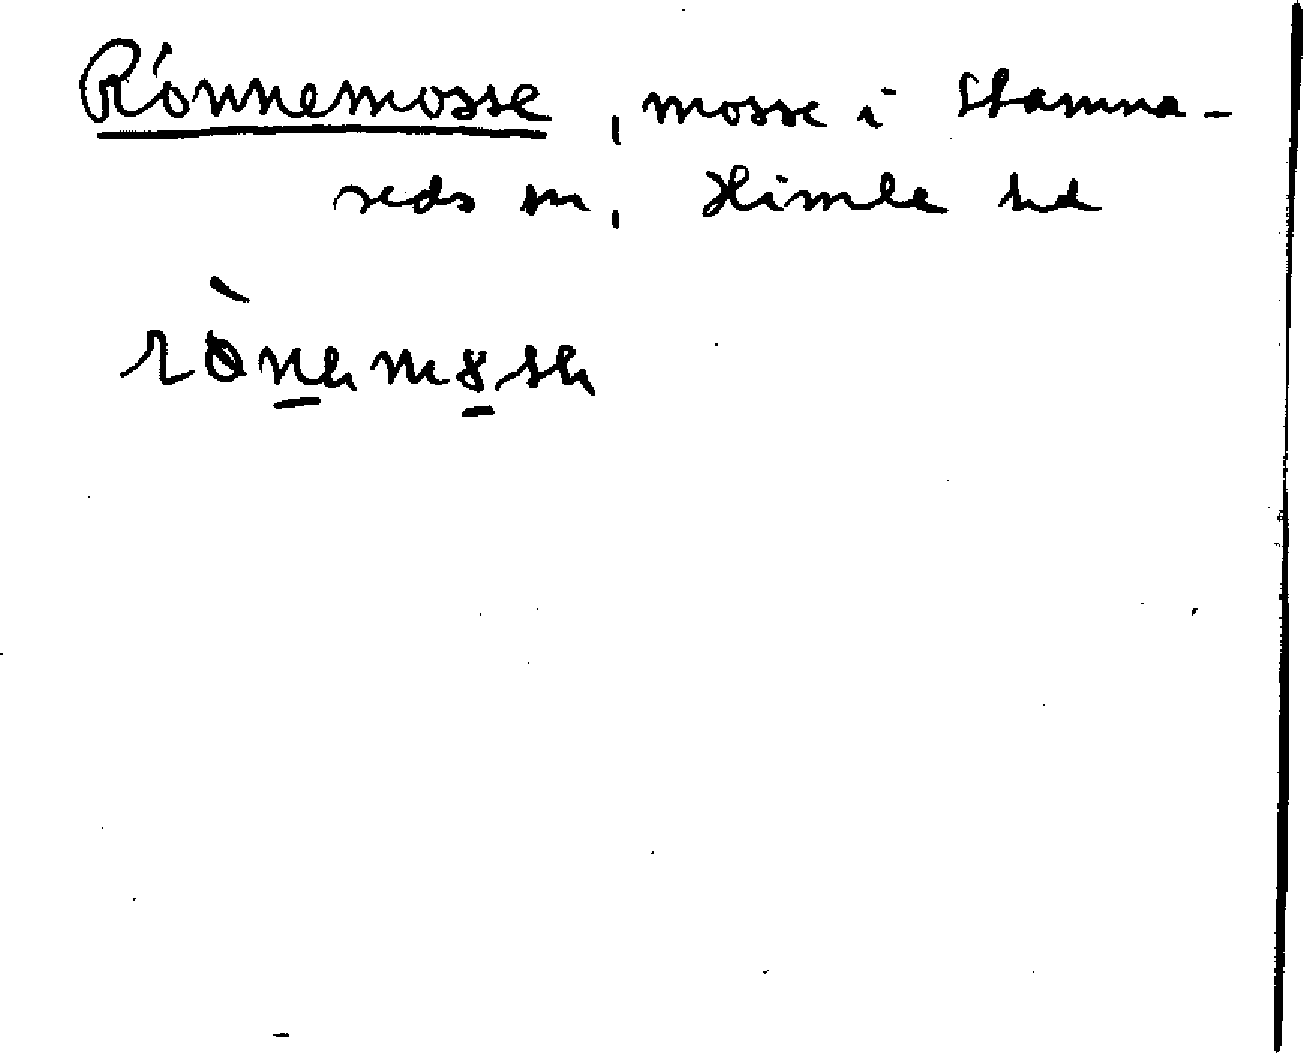 Rönnemosse, mosse i Stamna-
reds sn, Himle hd